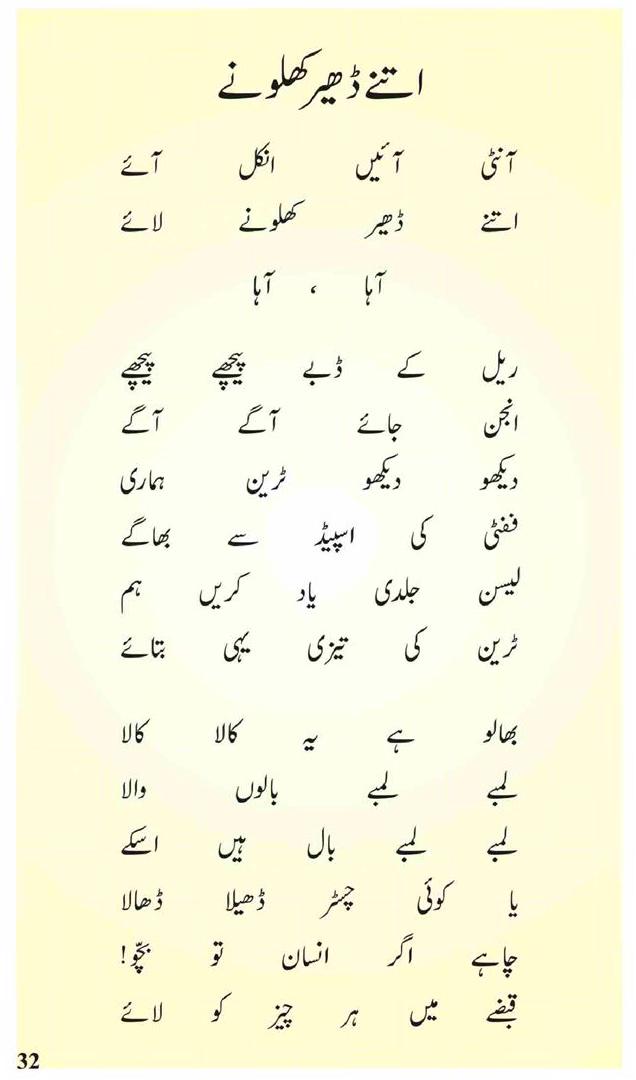 اتنے ڈھیر کھلونے
آنٹی آئیں انکل آئے
اتنے ڈھیر کھلونے لائے
آہا ، آہا
ریل کے ڈبے پیچھے پیچھے
انجن جائے آگے آگے
دیکھو دیکھو ٹرین ہماری
ففٹی کی اسپیڈ سے بھاگے
لیسن جلدی یاد کریں ہم
ٹرین کی تیزی یہی بتائے
بھالو ہے یہ کالا کالا
لمبے لمبے بالوں والا
لمبے لمبے بال ہیں اسکے
یا کوئی چسٹر ڈھیلا ڈھالا
چاہے اگر انسان تو بچّو!
قبضے میں ہر چیز کو لائے
32